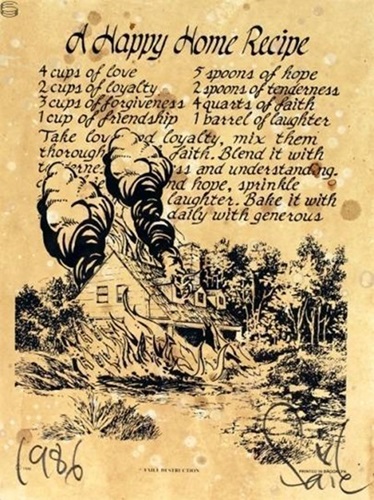 A Happy Home Recipe
4 cups of love 5 spoons of hope
2 cups of loyalty 2 spoons of tenderness
3 cups of forgiveness 4 quarts of faith
1 cup of friendship 1 barrel of laughter
Take loyalty, mix them
faith. Blend it with
and understanding.
hope, sprinkle
laughter. Bake it with
daily with generous
1986
FAMILY DESTRUCTION
PRINTED IN BROOKLYN